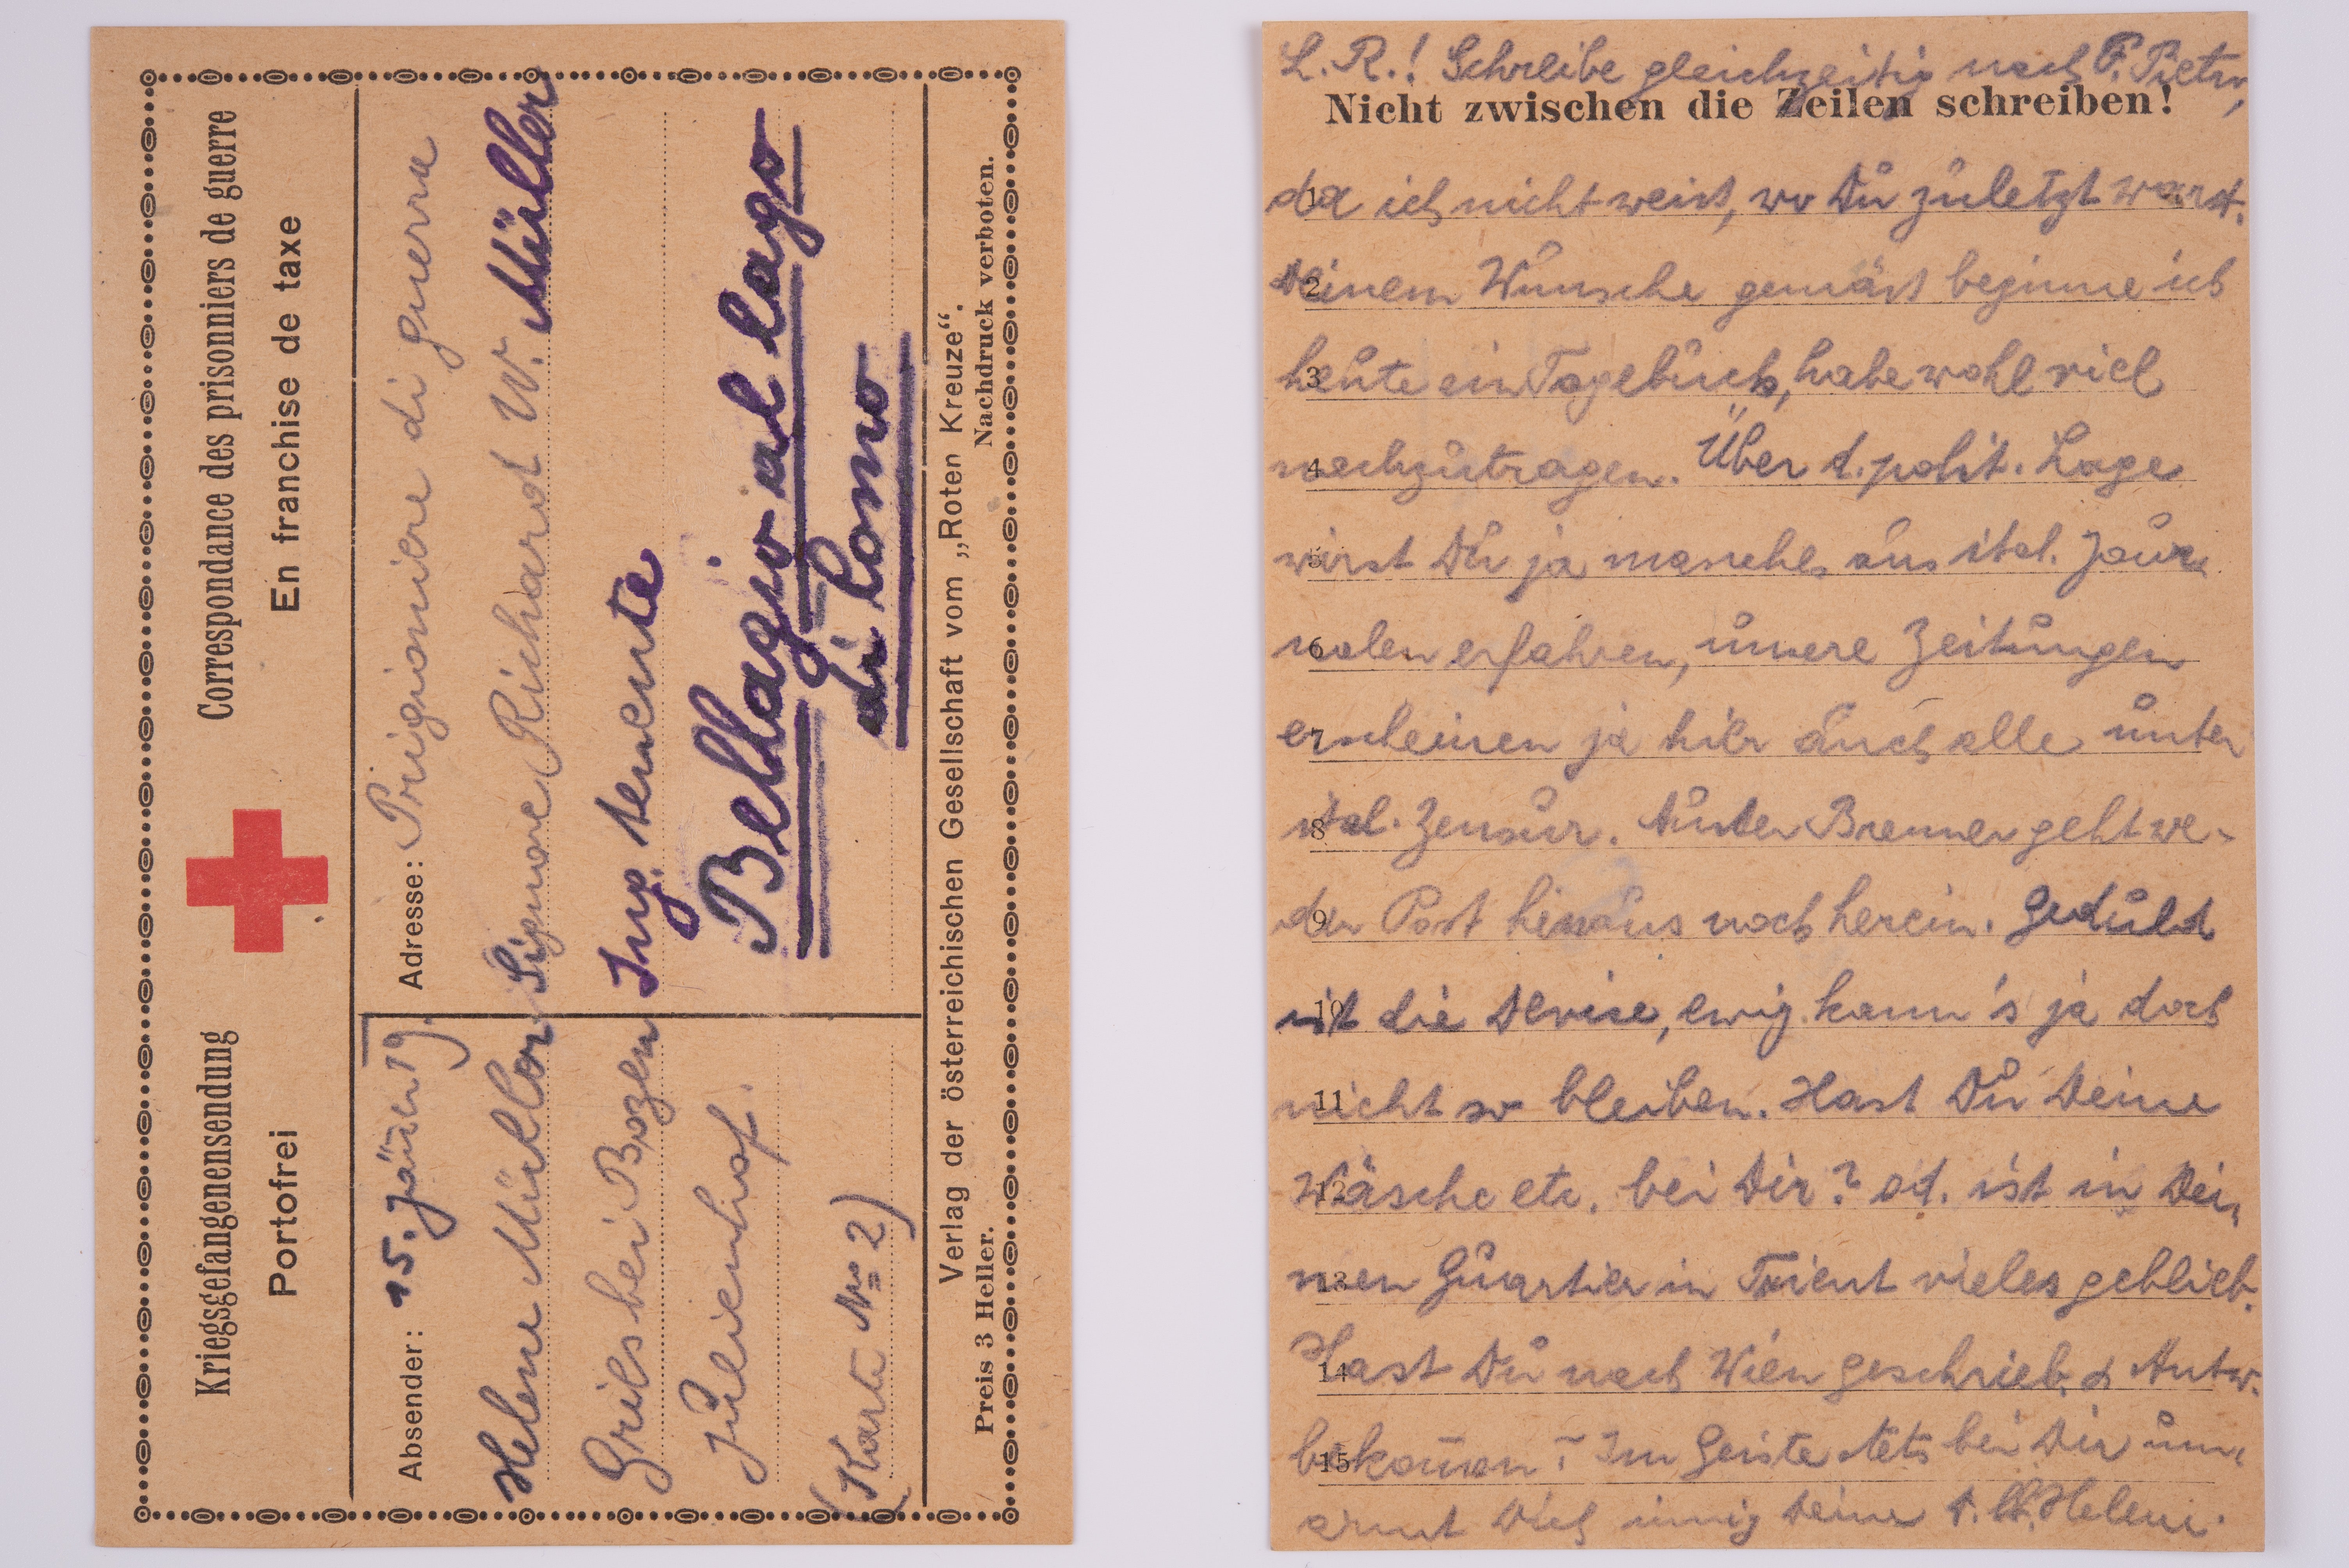 Kriegsgefangenensendung
Portofrei
Correspondance des prisonniers de guerre
En franchise de taxe
Absender: 15. Jänn 19.
Helene Müller
Gries bei Bozen
Julienhof.
(Karte No 2)
Adresse: Prigioniere di guerra
Signore Richard W. Müller
Ing. tenente
Bellagio al lago
di Como
Verlag der österreichischen Gesellschaft vom „Roten Kreuze“.
Preis 3 Heller.
Nachdruck verboten.
L. R.! Schreibe gleichzeitig nach P. Pietro,
Nicht zwischen die Zeilen schreiben!
1 da ich nicht weiss, wo Du zuletzt warst.
2 Deinem Wunsche gemäss beginne ich
3 heute ein Tagebuch, habe wohl viel
4 nachzutragen. Über d. polit. Lage
5 wirst Du ja manches aus ital. Jour-
6 nalen erfahren, unsere Zeitungen
7 erscheinen ja hier auch alle unter
8 ital. Zensur. Brenner geht we-
9 der Post hinaus noch herein. Geduld
10 ist die Devise, ewig kann's ja doch
11 nicht so bleiben. Hast Du Deine
12 Wäsche etc. bei Dir? od. ist in Dei-
13 nen Quartier in Trient vieles geblieb.
14 Hast Du nach Wien geschrieb. & Antw.
15 bekom̄en? Im Geiste stets bei Dir um-
armt Dich innig Deine Helene.